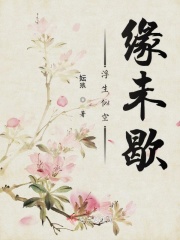 缘未歇
浮生似空
著